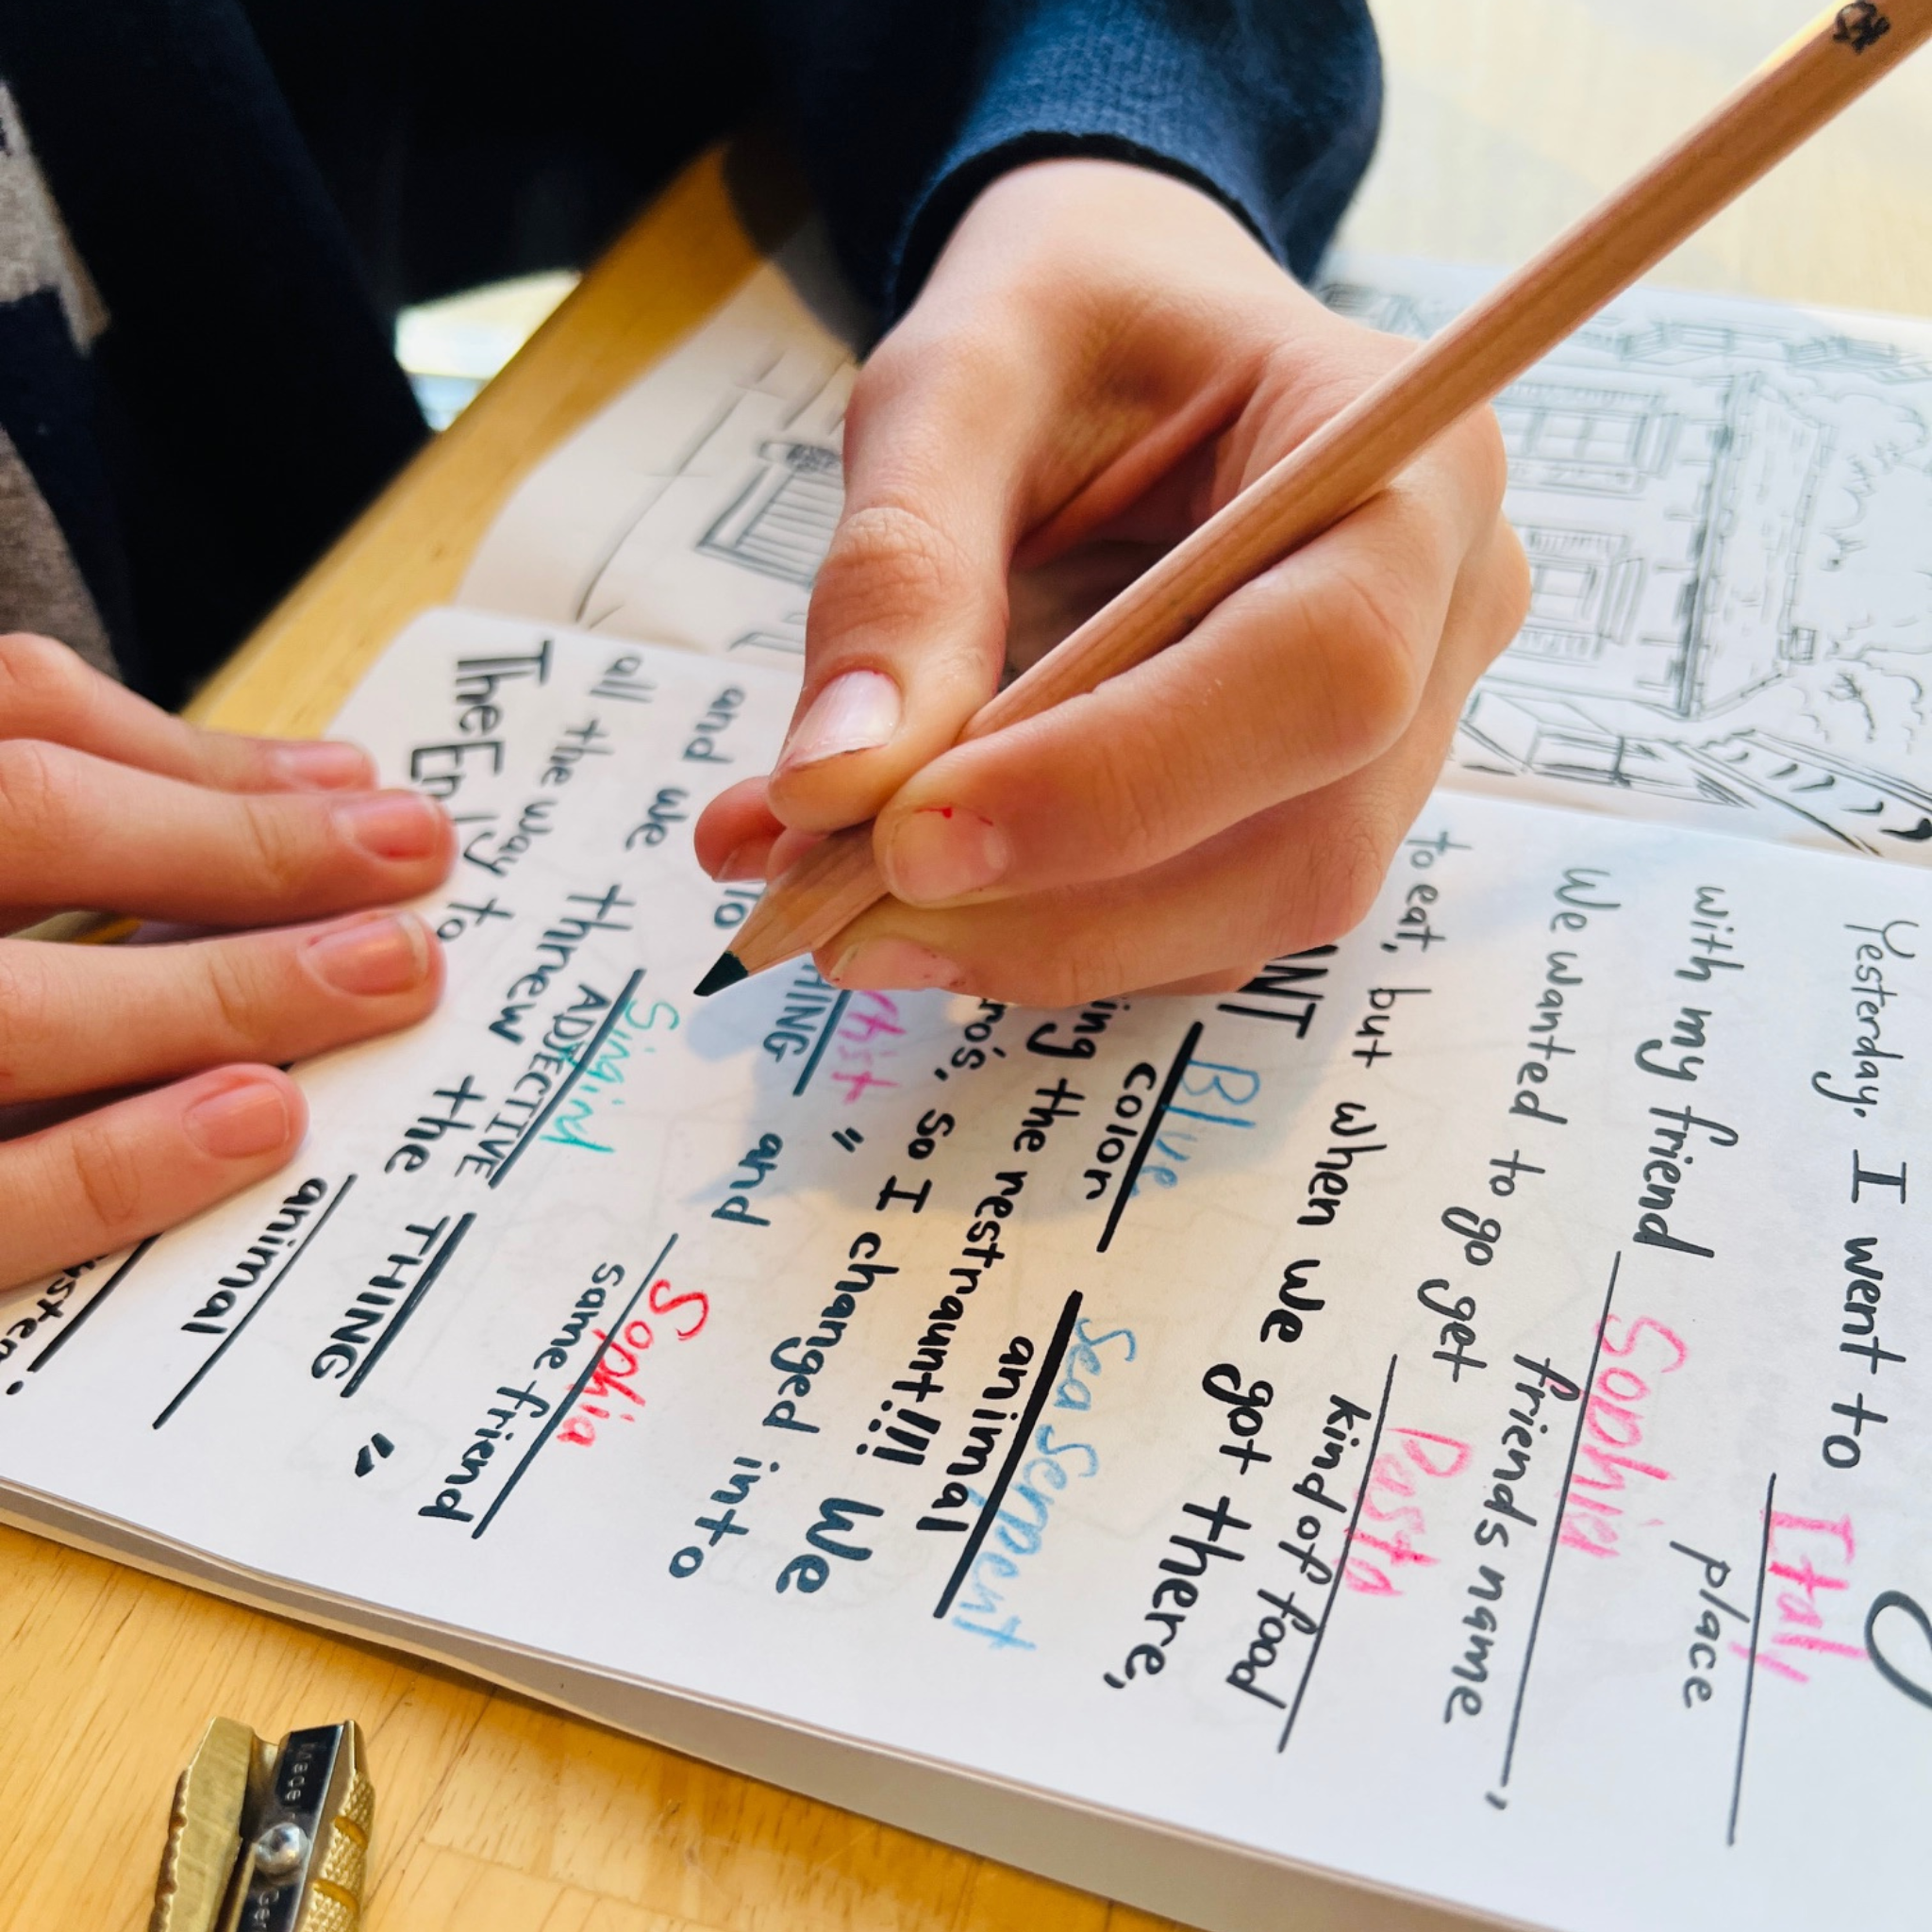 Yesterday, I went to Italy
place
with my friend Sophia
friends name,
We wanted to go get Pasta
kind of food
to eat, but when we got there,
Blue Sea Serpent
color animal
ing the restraunt!!!! We
so I changed into
"
THING and Sophia
same friend
and we Singing
ADJECTIVE
all the way to THING "
threw the animal
The En